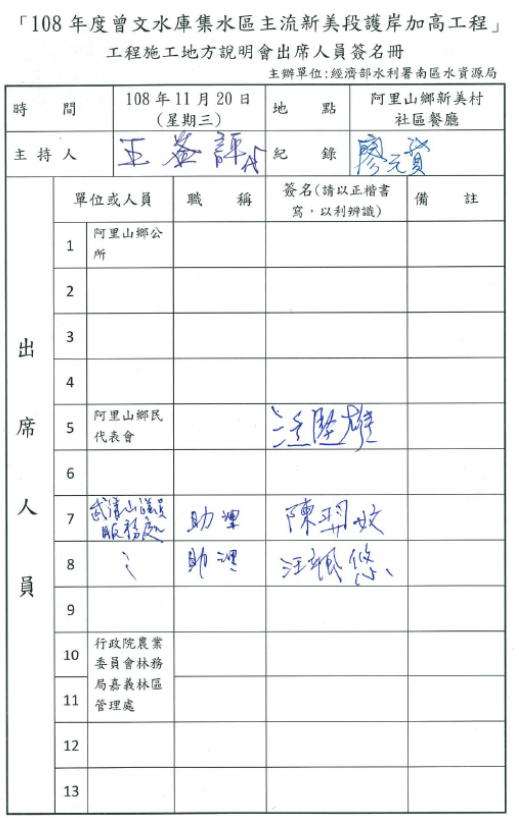 「108 年度曾文水庫集水區主流新美段護岸加高工程」
工程施工地方說明會出席人員簽名冊
主辦單位:經濟部水利署南區水資源局
時 間
108 年 11 月 20 日
(星期三)
地 點
阿里山鄉新美村
社區餐廳
主持人
王
評
紀 錄
廖元
出席人員
單位或人員
職 稱
簽名(請以正楷書
寫,以利辨識)
備 註
1
阿里山鄉公
所
2
3
4
5
阿里山鄉民
代表會
雄
6
7
武清山議員
服務處
助理
陳羿妏
8
助理
汪 悠
9
10
行政院農業
委員會林務
局嘉義林區
管理處
11
12
13